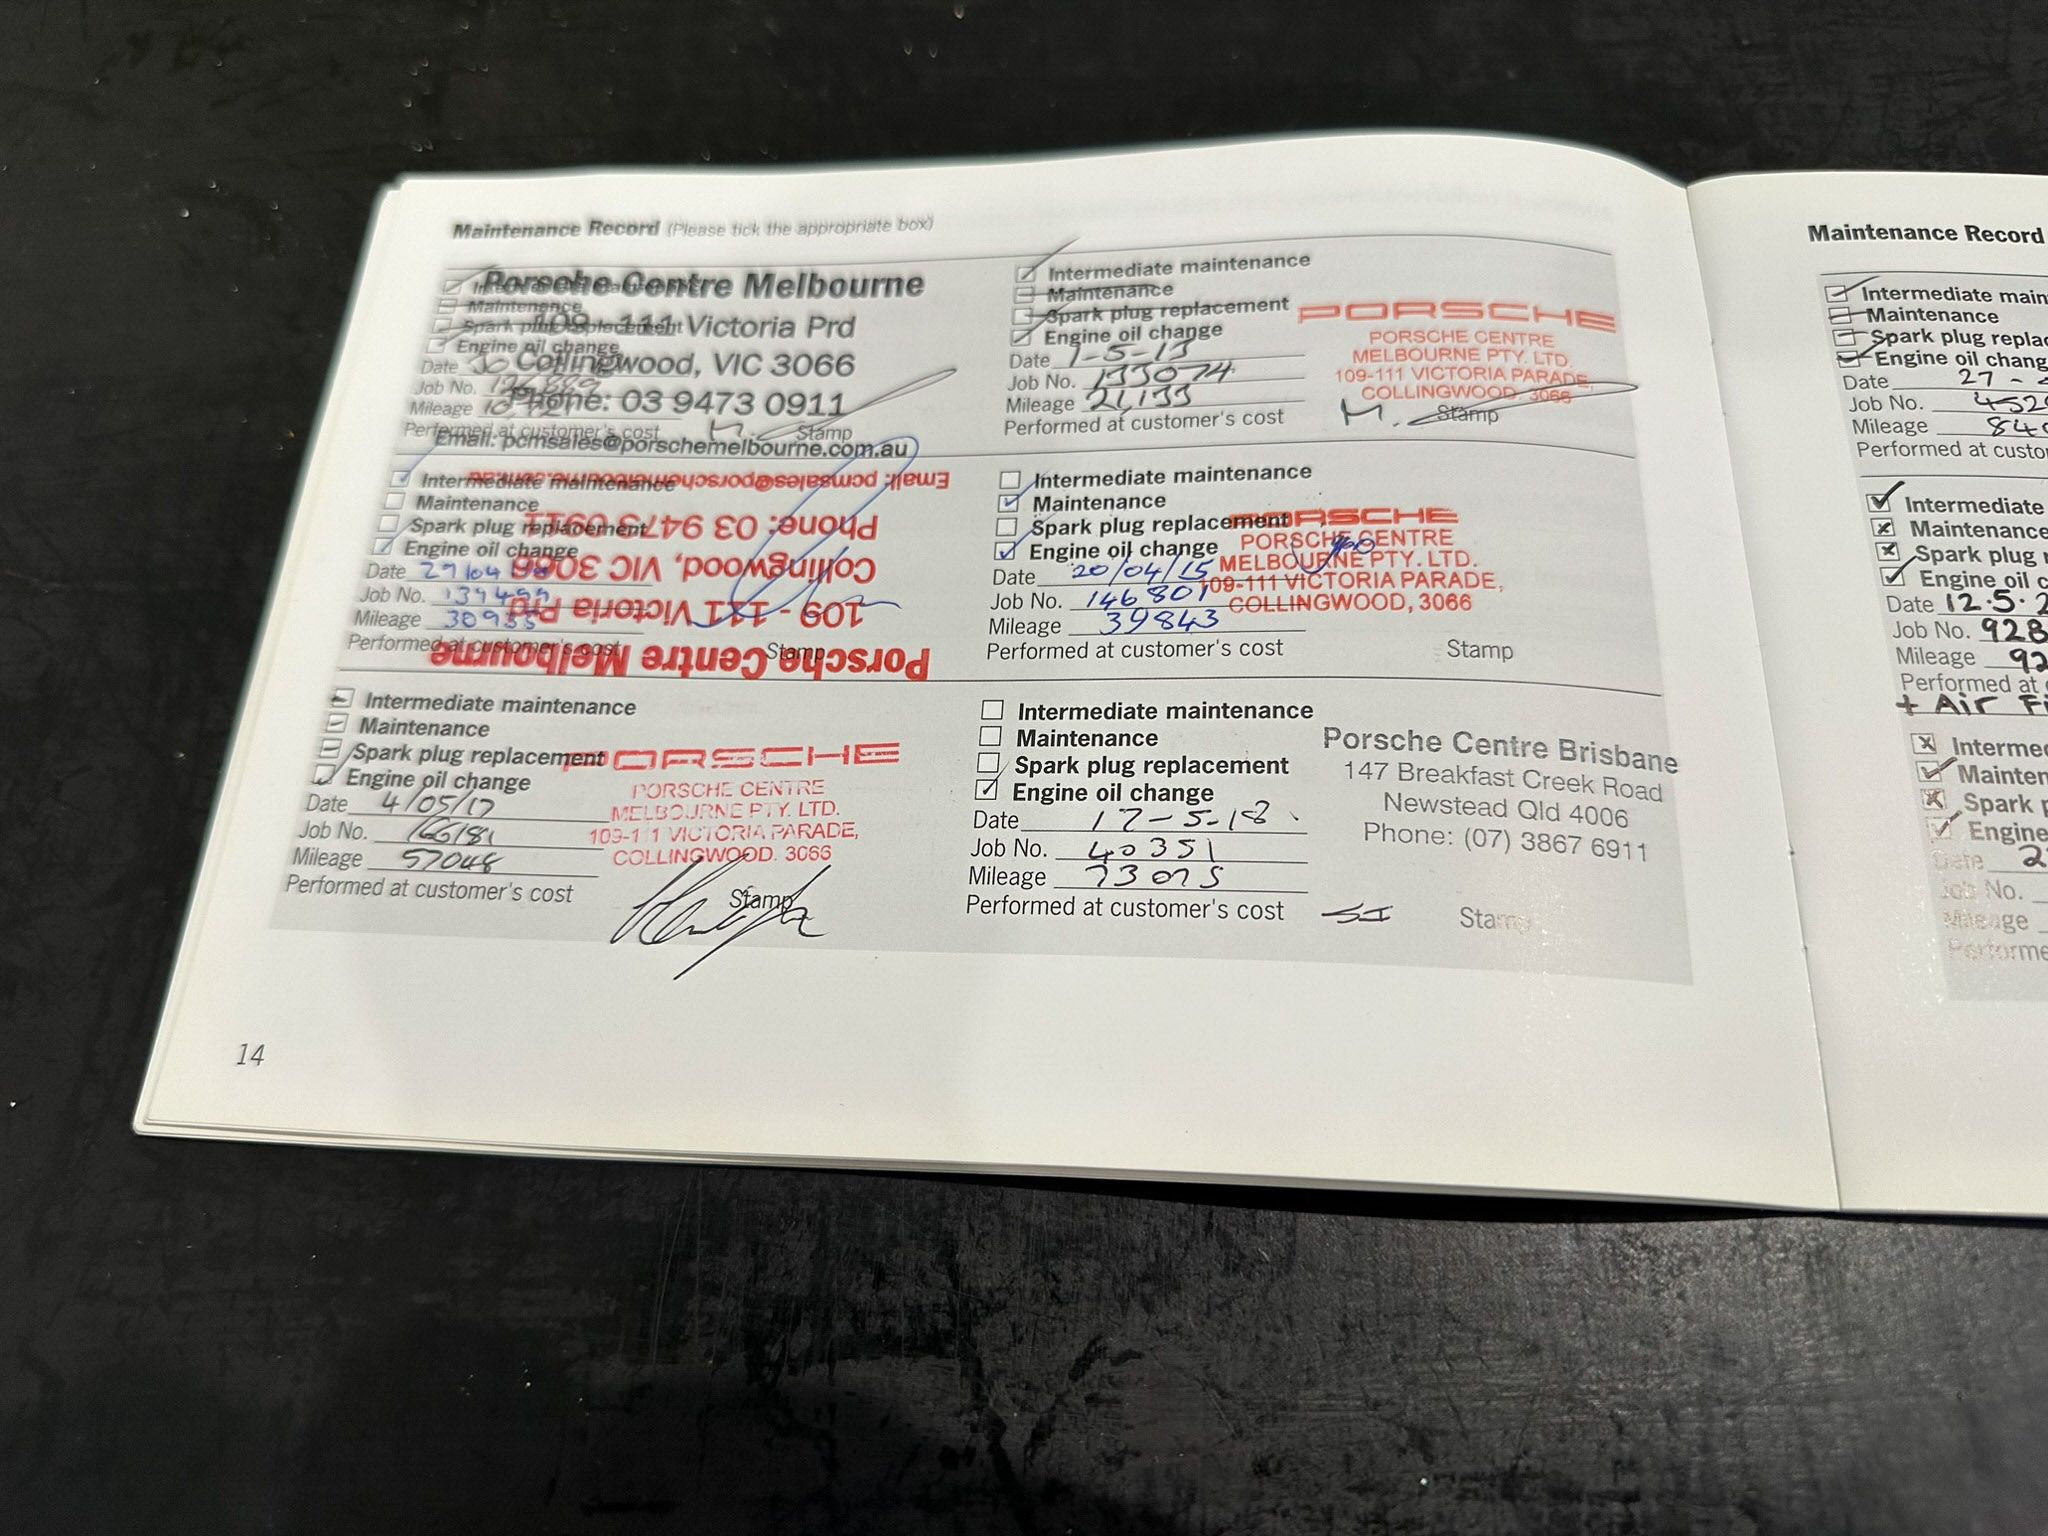 Maintenance Record (Please tick the appropriate box)
Porsche Centre Melbourne
Maintenance
109 - 111 Victoria Prd
Engine oil change
Collingwood, VIC 3066
Date 30
Job No.
Phone: 03 9473 0911
Mileage
Performed at customer's cost M. Stamp
Email: pcmsales@porschemelbourne.com.au
Intermediate maintenance
Maintenance
Spark plug replacement
Engine oil change
Date 1-5-13
Job No. 133074
Mileage 21,133
Performed at customer's cost M. Stamp
PORSCHE
PORSCHE CENTRE
MELBOURNE PTY. LTD.
109-111 VICTORIA PARADE,
COLLINGWOOD. 3066
Intermediate maintenance
Maintenance
Spark plug replacement
Engine oil change
Date 29/04
Job No. 139499
Mileage 30935
Performed at customer's cost Stamp
Porsche Centre Melbourne
109 - 111 Victoria Prd
Collingwood, VIC 3066
Phone: 03 9473 0911
Email: pcmsales@porschemelbourne.com.au
Intermediate maintenance
Maintenance
Spark plug replacement
Engine oil change
Date 20/04/15
Job No. 146801
Mileage 39843
Performed at customer's cost Stamp
PORSCHE
PORSCHE CENTRE
MELBOURNE PTY. LTD.
109-111 VICTORIA PARADE,
COLLINGWOOD, 3066
Intermediate maintenance
Maintenance
Spark plug replacement
Engine oil change
Date 4/05/17
Job No. 166181
Mileage 57048
Performed at customer's cost Stamp
PORSCHE
PORSCHE CENTRE
MELBOURNE PTY. LTD.
109-111 VICTORIA PARADE,
COLLINGWOOD. 3066
Intermediate maintenance
Maintenance
Spark plug replacement
Engine oil change
Date 17-5-18
Job No. 40351
Mileage 73075
Performed at customer's cost SI Stamp
Porsche Centre Brisbane
147 Breakfast Creek Road
Newstead Qld 4006
Phone: (07) 3867 6911
14
Maintenance Record
Intermediate main
Maintenance
Spark plug repla
Engine oil chang
Date 27 -
Job No. 452
Mileage 84
Performed at custo
Intermediate
Maintenance
Spark plug r
Engine oil c
Date 12.5.2
Job No. 928
Mileage 92
Performed at
+ Air Fi
Interme
Mainten
Spark p
Engine
Date 2
Job No.
Mileage
Performe